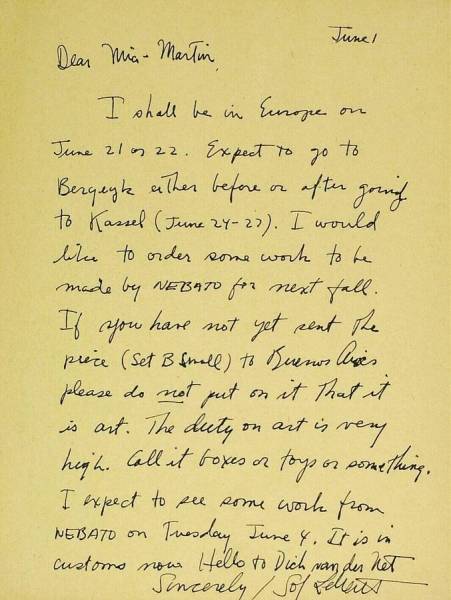 June 1
Dear Mia-Martin,
I shall be in Europe on
June 21 or 22. Expect to go to
Bergeyk either before or after going
to Kassel (June 24-27). I would
like to order some work to be
made by NEBATO for next fall.
If you have not yet sent the
piece (Set B Small) to Buenos Aires
please do not put on it that it
is art. The duty on art is very
high. Call it boxes or toys or something.
I expect to see some work from
NEBATO on Tuesday June 4. It is in
customs now Hello to Dick van der Net
Sincerely / Sol LeWitt